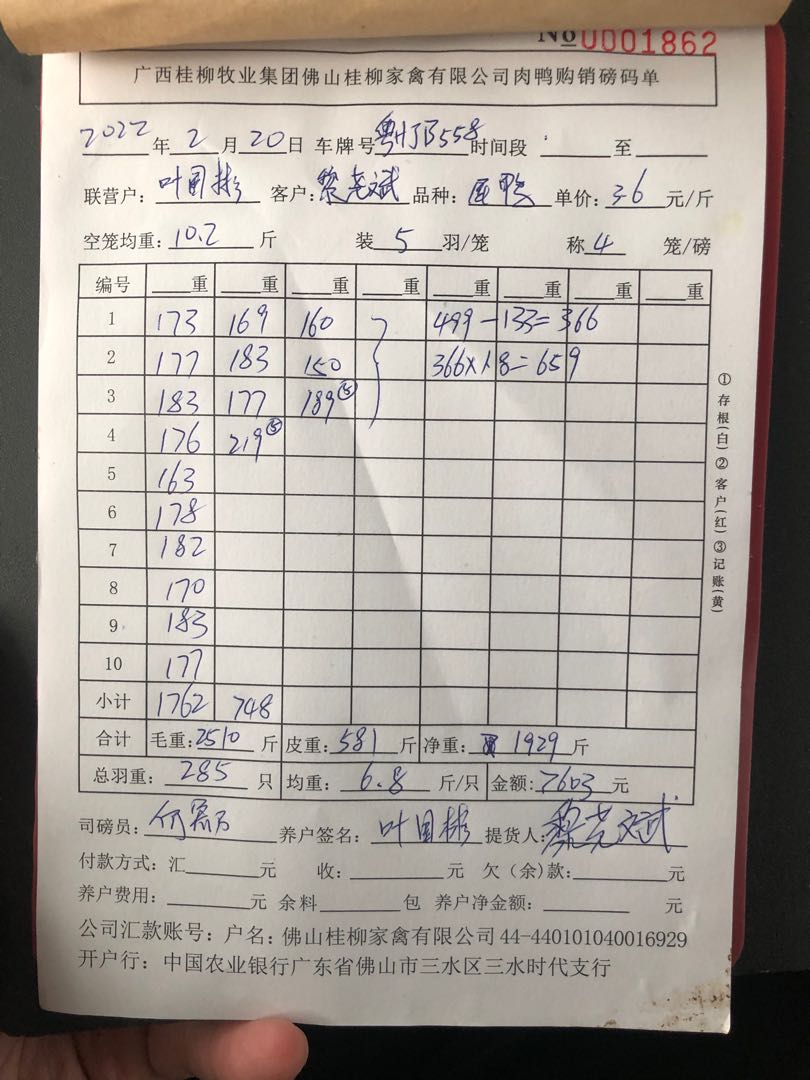 No 0001862
广西桂柳牧业集团佛山桂柳家禽有限公司肉鸭购销磅码单
2022年 2 月 20 日 车牌号 粤HJB558 时间段 至
联营户: 叶国彬 客户: 黎尧斌 品种: 鸭 单价: 3.6 元/斤
空笼均重: 10.2 斤 装 5 羽/笼 称 4 笼/磅
编号 重 重 重 重 重 重 重 重
1 173 169 160 499-133=366
2 177 183 150 366×1.8=659
3 183 177 189⑮
4 176 219⑤
5 163
6 178
7 182
8 170
9 183
10 177
小计 1762 748
合计 毛重: 2510 斤 皮重: 581 斤 净重: 1929 斤
总羽重: 285 只 均重: 6.8 斤/只 金额: 7603 元
司磅员: 养户签名: 叶国彬 提货人: 黎尧斌
付款方式: 汇 元 收: 元 欠(余)款: 元
养户费用: 元 余料 包 养户净金额: 元
公司汇款账号: 户名: 佛山桂柳家禽有限公司 44-440101040016929
开户行: 中国农业银行广东省佛山市三水区三水时代支行
①存根(白)②客户(红)③记账(黄)